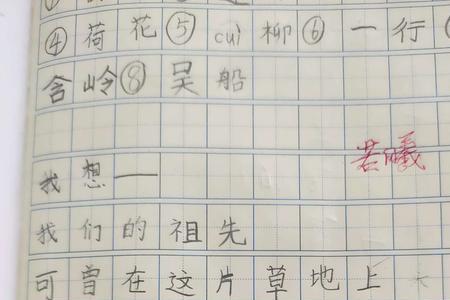 ④荷花⑤cuì柳⑥一行
含岭⑧吴船
若曦
我想——
我们的祖先
可曾在这片草地上